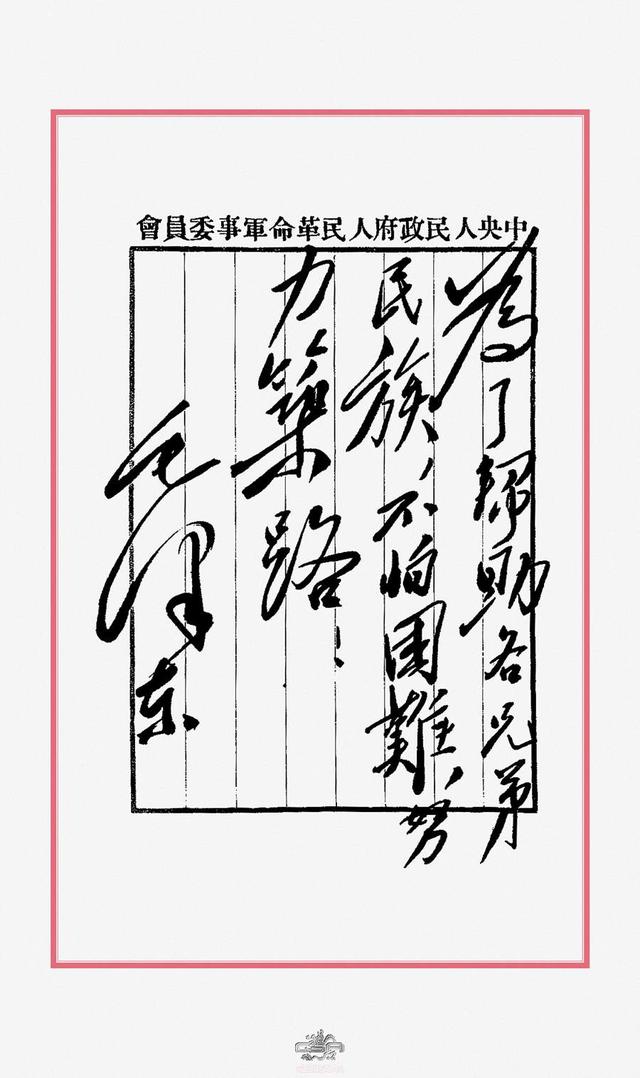 中央人民政府人民革命軍事委員會
為了帮助各兄弟
民族，不怕困難，努
力築路！
毛澤东